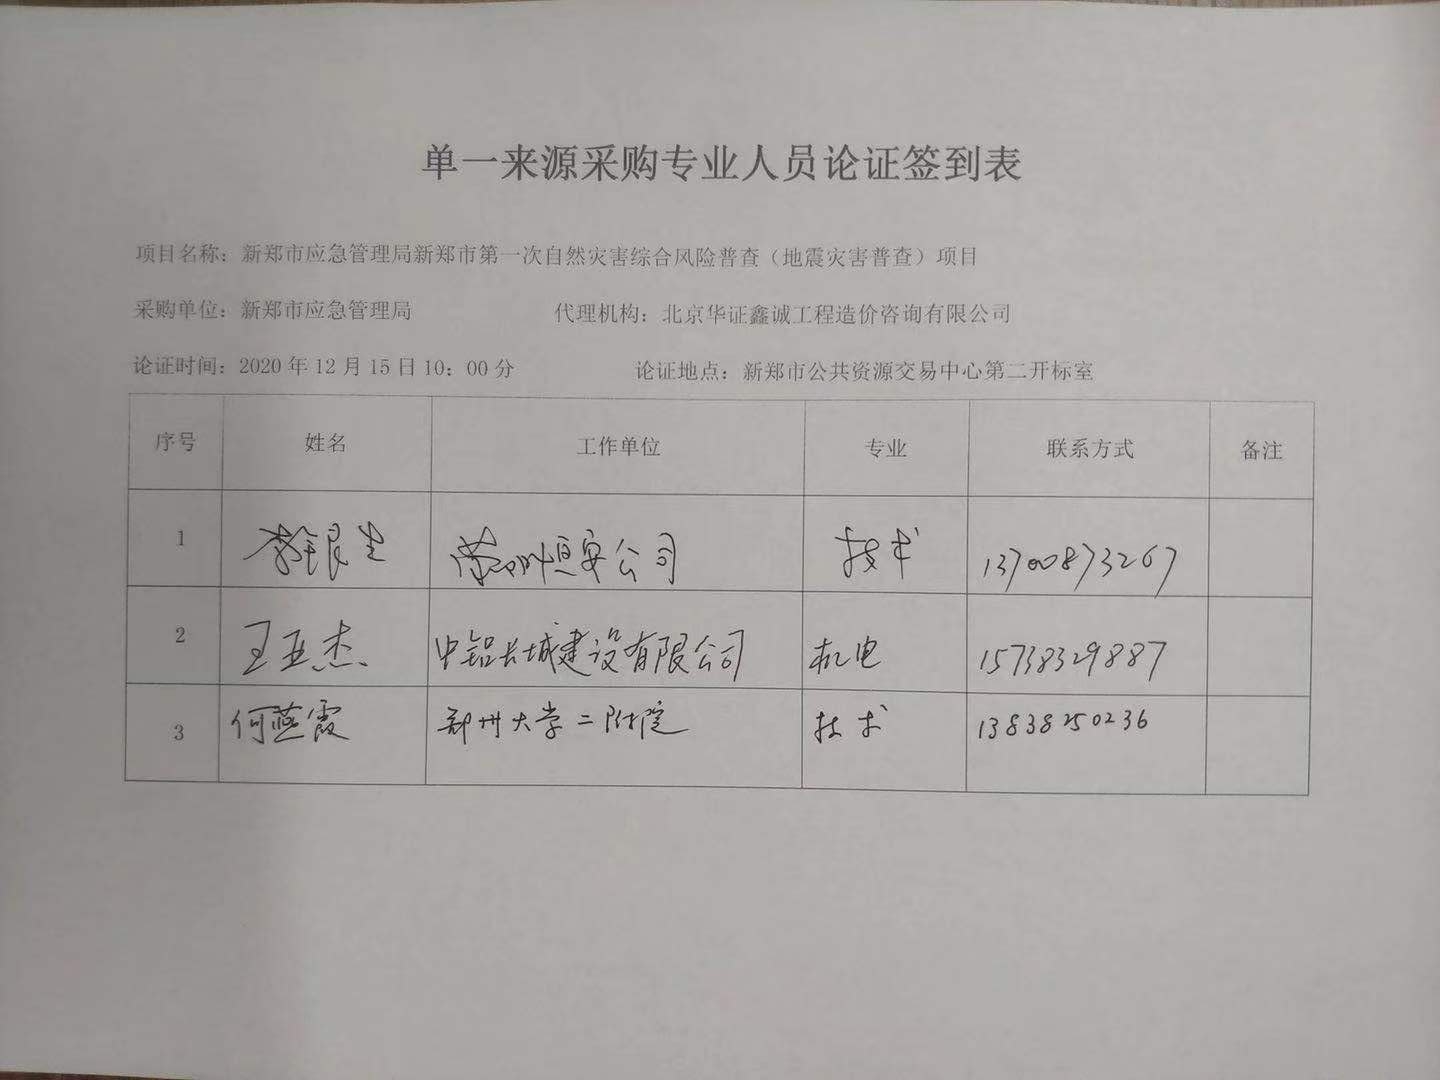 单一来源采购专业人员论证签到表
项目名称：新郑市应急管理局新郑市第一次自然灾害综合风险普查（地震灾害普查）项目
采购单位：新郑市应急管理局 代理机构：北京华证鑫诚工程造价咨询有限公司
论证时间：2020年12月15日10：00分 论证地点：新郑市公共资源交易中心第二开标室
序号 姓名 工作单位 专业 联系方式 备注
1 恒安公司 技术 13700873267
2 王亚杰 中铝长城建设有限公司 机电 15738329887
3 何燕霞 郑州大学二附院 技术 13838250236